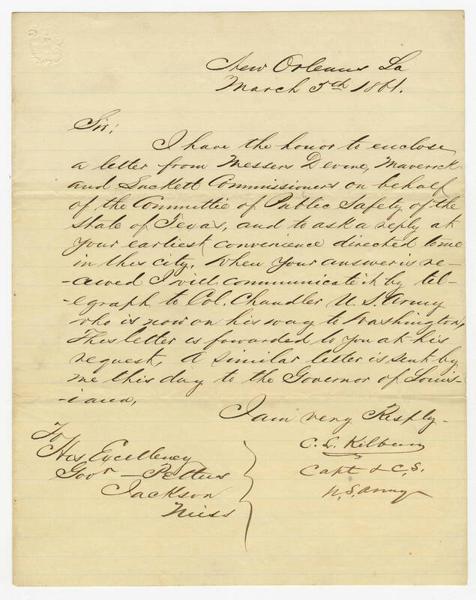 New Orleans La
March 5th 1861.
Sir:
I have the honor to enclose
a letter from Messers Devine, Maverick
and Luckett Commissioners on behalf
of the Committie of Public Safety of the
State of Texas, and to ask a reply at
your earliest convenience directed to me
in this city. When your answer is re-
-ceived I will communicate it by tel-
-egraph to Col. Chandler U.S. Army
who is now on his way to Washington,
This letter is forwarded to you at his
request, A similar letter is sent by
me this day to the Governor of Louis-
-iana,
I am very Resply-
C. L. Kilburn
Capt & C.S.
U.S. Army
To
His Excellency
Govr - Pettus
Jackson
Miss